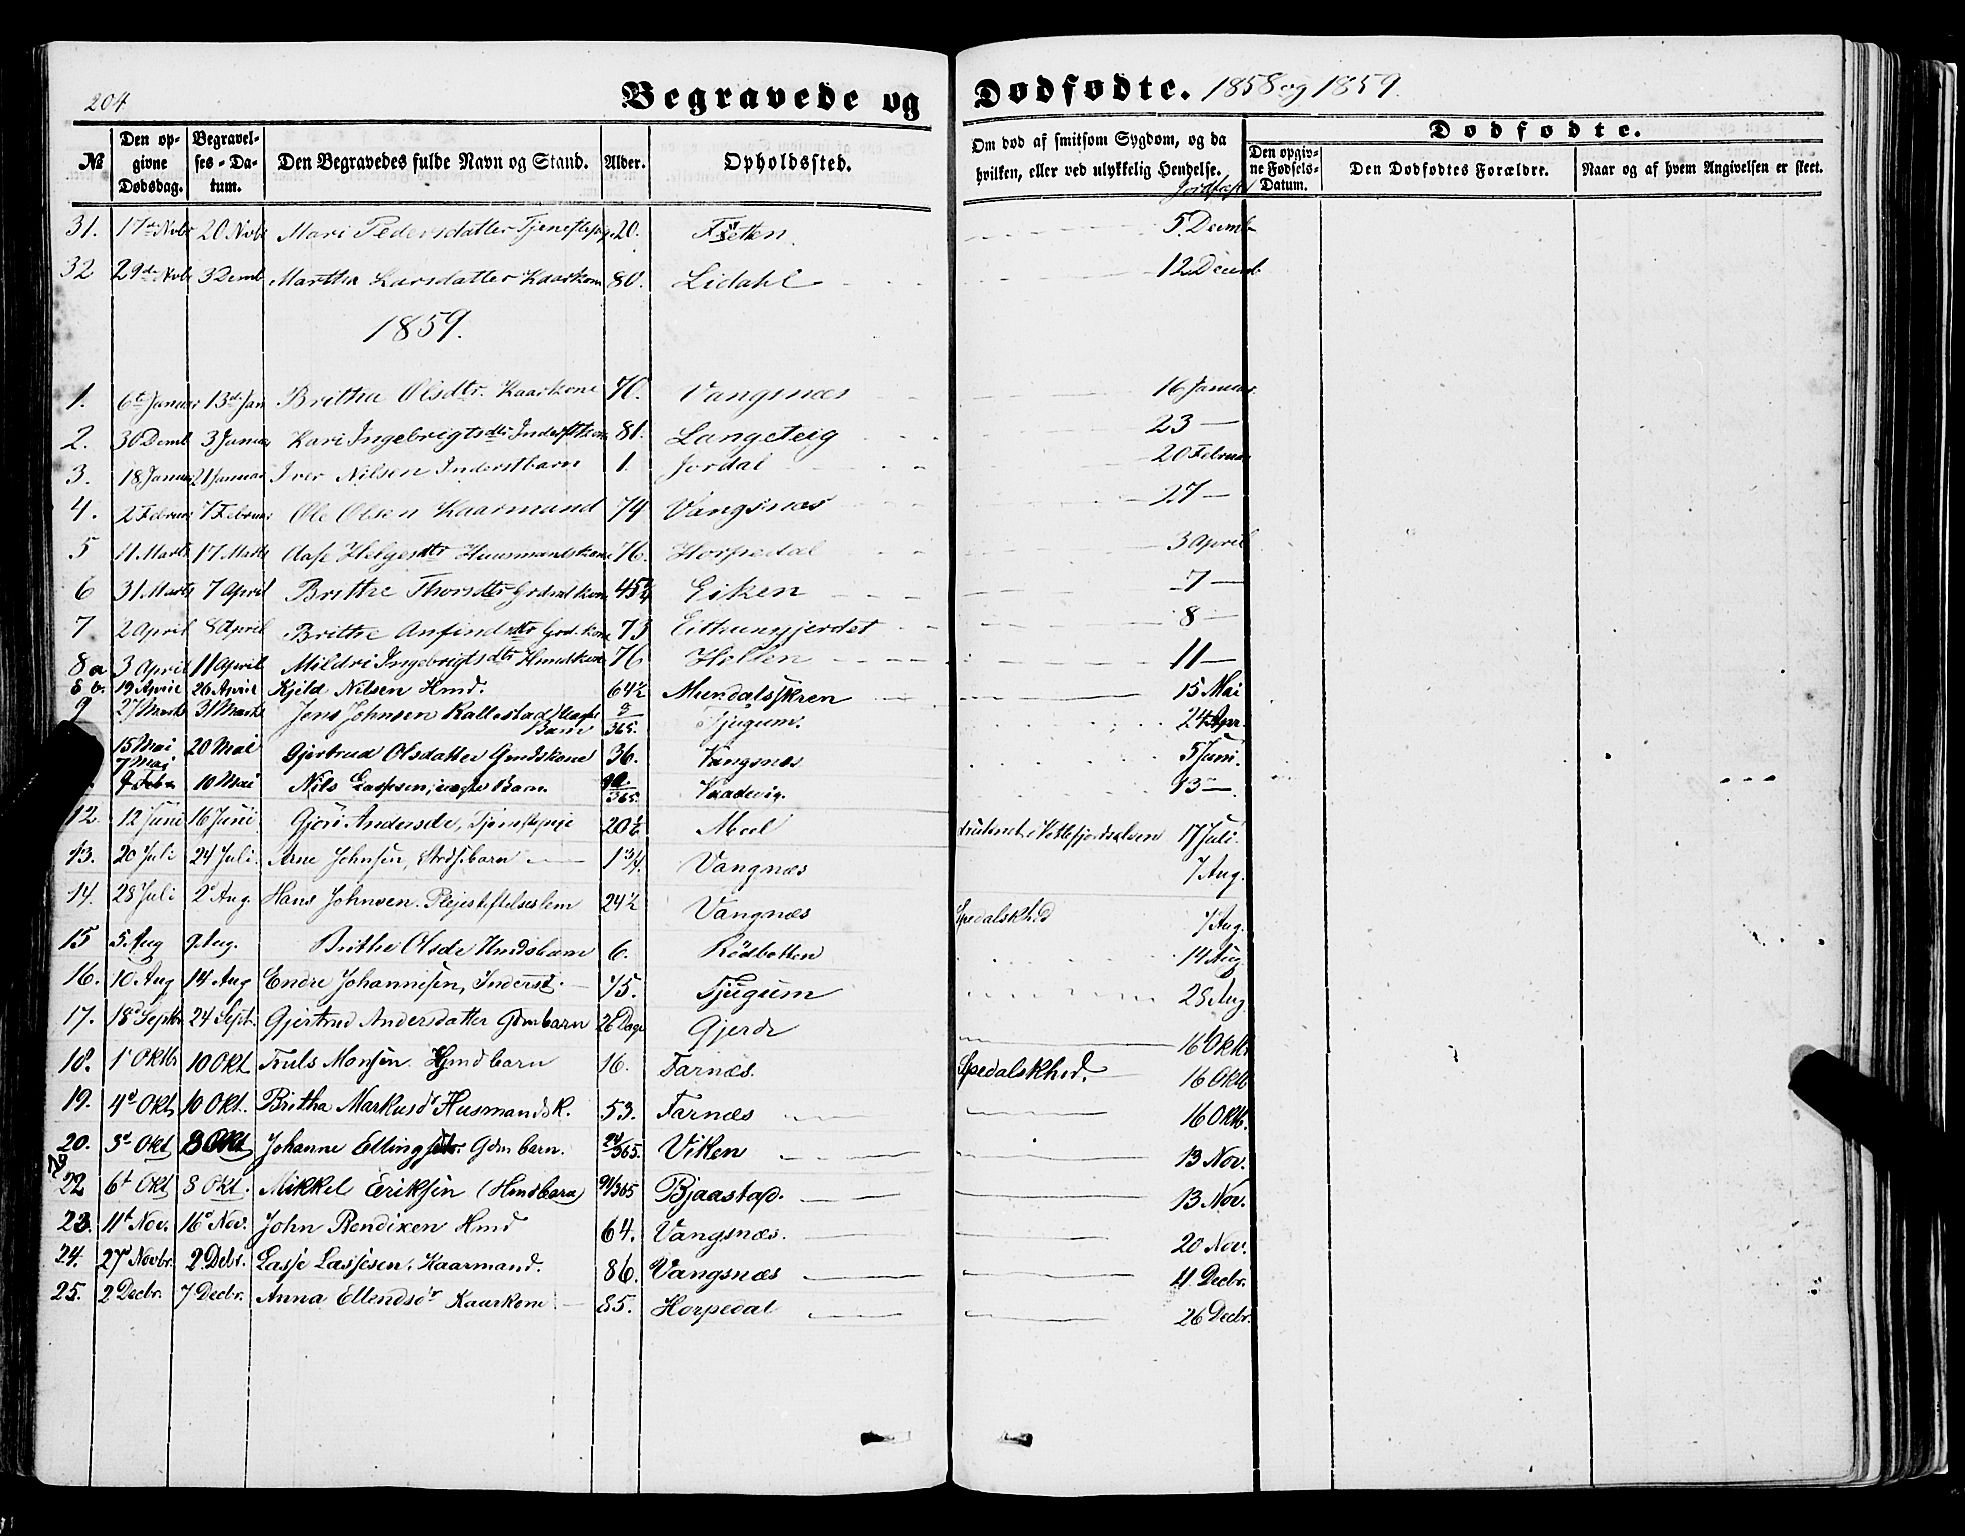 204
Begravede og Dødfødte. 1858 og 1859.
№ Den opgivne Dødsdag. Begravelses-Datum. Den Begravedes fulde Navn og Stand. Alder. Opholdssted. Om død af smitsom Sygdom, og da hvilken, eller ved ulykkelig Hendelse. Dødfødte. Den opgivne Fødsels-Datum. Den Dødfødtes Forældre. Naar og af hvem Angivelsen er skeet.
31. 17de Novbr 20 Novbr Mari Pedersdatter 20. 5. Decemb
32 29de Novb 3 Demb Martha Larsdatter Kaarkone 80. Lidahl 12 Decemb.
1859.
1. 6t Januar 13d Jan Brithe Olsdtr. Kaarkone 70. Vangsnæs 16 Januar
2. 30 Demb 3 Januar Kari Ingebrigtsdtr Inderstkone 81. Langeteig 23 —
3. 18 Januar 21 Januar Iver Nilsen Inderstbarn 1. Jordal 20 Februar
4. 2 Februar 7 Februar Ole Olsen Kaarmand 74 Vangsnæs 27 —
5 11 Marts 17 Marts Aase Helgesdtr Huusmandskone 76. Horpedal 3 April
6 31 Marts 7 April Brithe Thorsdtr Grdmdkone 45 1/4 Eiken 7 —
7 2 April 8 April Brithe Anfindsdtr Grd.kone 73 8 —
8 a 3 April 11 April Mildri Ingebrigtsdtr Hmdskone 76 Holten 11 —
8 b. 19 April 26 April Kjeld Nilsen Hmd. 64½ Mundalsskren 15 Mai
9 27 Marts 31 Marts Jens Johnsen Kallestad Barn 3/365. Tjugum. 24 Apr.
15 Mai 20 Mai Gjertrud Olsdatter Gmdskone 36. Vangsnæs 5 Juni.
7 Mai 10 Mai Nils Lassesen, uægte Barn 13 —
12. 12 Juni 16 Juni. Gjøri Andersdr, Tjenestepige 20½ Meel druknet i Vettlefjordselven 17 Juli.
13. 20 Juli 24 Juli. Arne Johnsen, 1 3/4. Vangnæs 7 Aug.
14. 28 Juli 2d Aug. Hans Johnsen. Pleiestiftelseslem 24½ Vangnæs Spedalskhed 7 Aug.
15 5. Aug 9. Aug. Brithe Olsdr Hmdsbarn 6. Rödbotten 14 Aug.
16. 10. Aug 14 Aug Endre Johannesen, Inderst. 75. Tjugum 28 Aug.
17. 18d Septbr 24 Sept. Gjertrud Andersdatter Gdmbarn 26 Dage Gjerde 16 Oktbr
18. 1t Oktbr 10 Okt. Truls Monsen. Hmdbarn 16. Farnæs. Spedalskhed. 16 Oktb
19. 4d Okt 10 Okt. Britha Markusdr Husmandsk. 53. Farnæs 16 Oktb.
20. 3d Okt 8 Okt Johanne Ellingsdtr. Gdmbarn. 24/365. Viken 13 Nov.
22 6t Okt 8 Okt. Mikkel Eriksen (Hmdbarn) 91/365 Bjaastad. 13 Nov.
23. 11t Nov. 16d Nov. John Bendixen Hmd 64. Vangsnæs. 20 Nov.
24. 27d Novbr. 2. Debr. Lasse Lassesen, Kaarmand. 86. Vangsnæs 11. Decbr.
25. 2 Decbr. 7 Decbr. Anna Ellendsdr Kaarkone 85. Horpedal 26 Decbr.